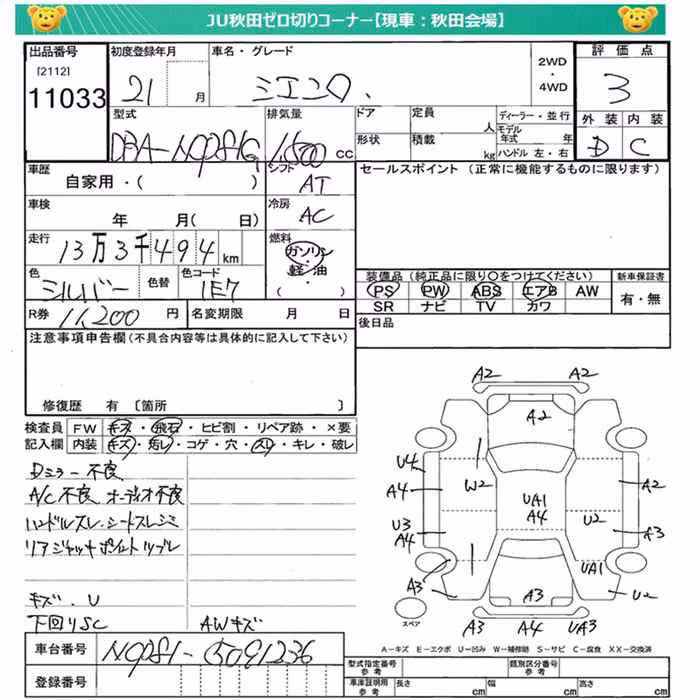 JU秋田ゼロ切りコーナー【現車:秋田会場】
出品番号 初度登録年月 車名・グレード 2WD・4WD 評価点
[2112]
11033 21 月 シエンタ. 3
型式 排気量 ドア 定員 人 ディーラー・並行 外装 内装
モデル年式 年
DBA-NCP81G 1,500 cc 形状 積載 kg ハンドル 左・右 D C
車歴 シフト セールスポイント (正常に機能するものに限ります)
自家用・( ) AT
車検 冷房
年 月( 日) AC
走行 燃料
13万3千494km ガソリン・軽・油
色 色替 色コード ( ) 装備品(純正品に限り○をつけてください) 新車保証書
シルバー 1E7 PS PW ABS エアB AW 有・無
SR ナビ TV カワ
R券 11,200 円 名変期限 月 日 後日品
注意事項申告欄(不具合内容等は具体的に記入して下さい)
修復歴 有 〔箇所 〕
検査員 FW キズ・飛石・ヒビ割・リペア跡・×要
記入欄 内装 キズ・汚レ・コゲ・穴・スレ・キレ・破レ
Dミラー不良
A/C不良 オーディオ不良
ハンドルスレ.シートスレジミ
リアジャッキポイントツブレ
キズ.U
下回りSC AWキズ
A2 A2
A2
U4
W2
A4 A2
UA1
A4
U3 U2
A4 A3
A3 UA1
A3 U2
スペア
A3 A4 UA3
A-キズ E-エクボ U-凹み W-補修跡 S-サビ C-腐食 XX-交換済
車台番号 NCP81-5091236
型式指定番号 類別区分番号
登録番号 車庫証明用参考 長さ cm 幅 cm 高さ cm